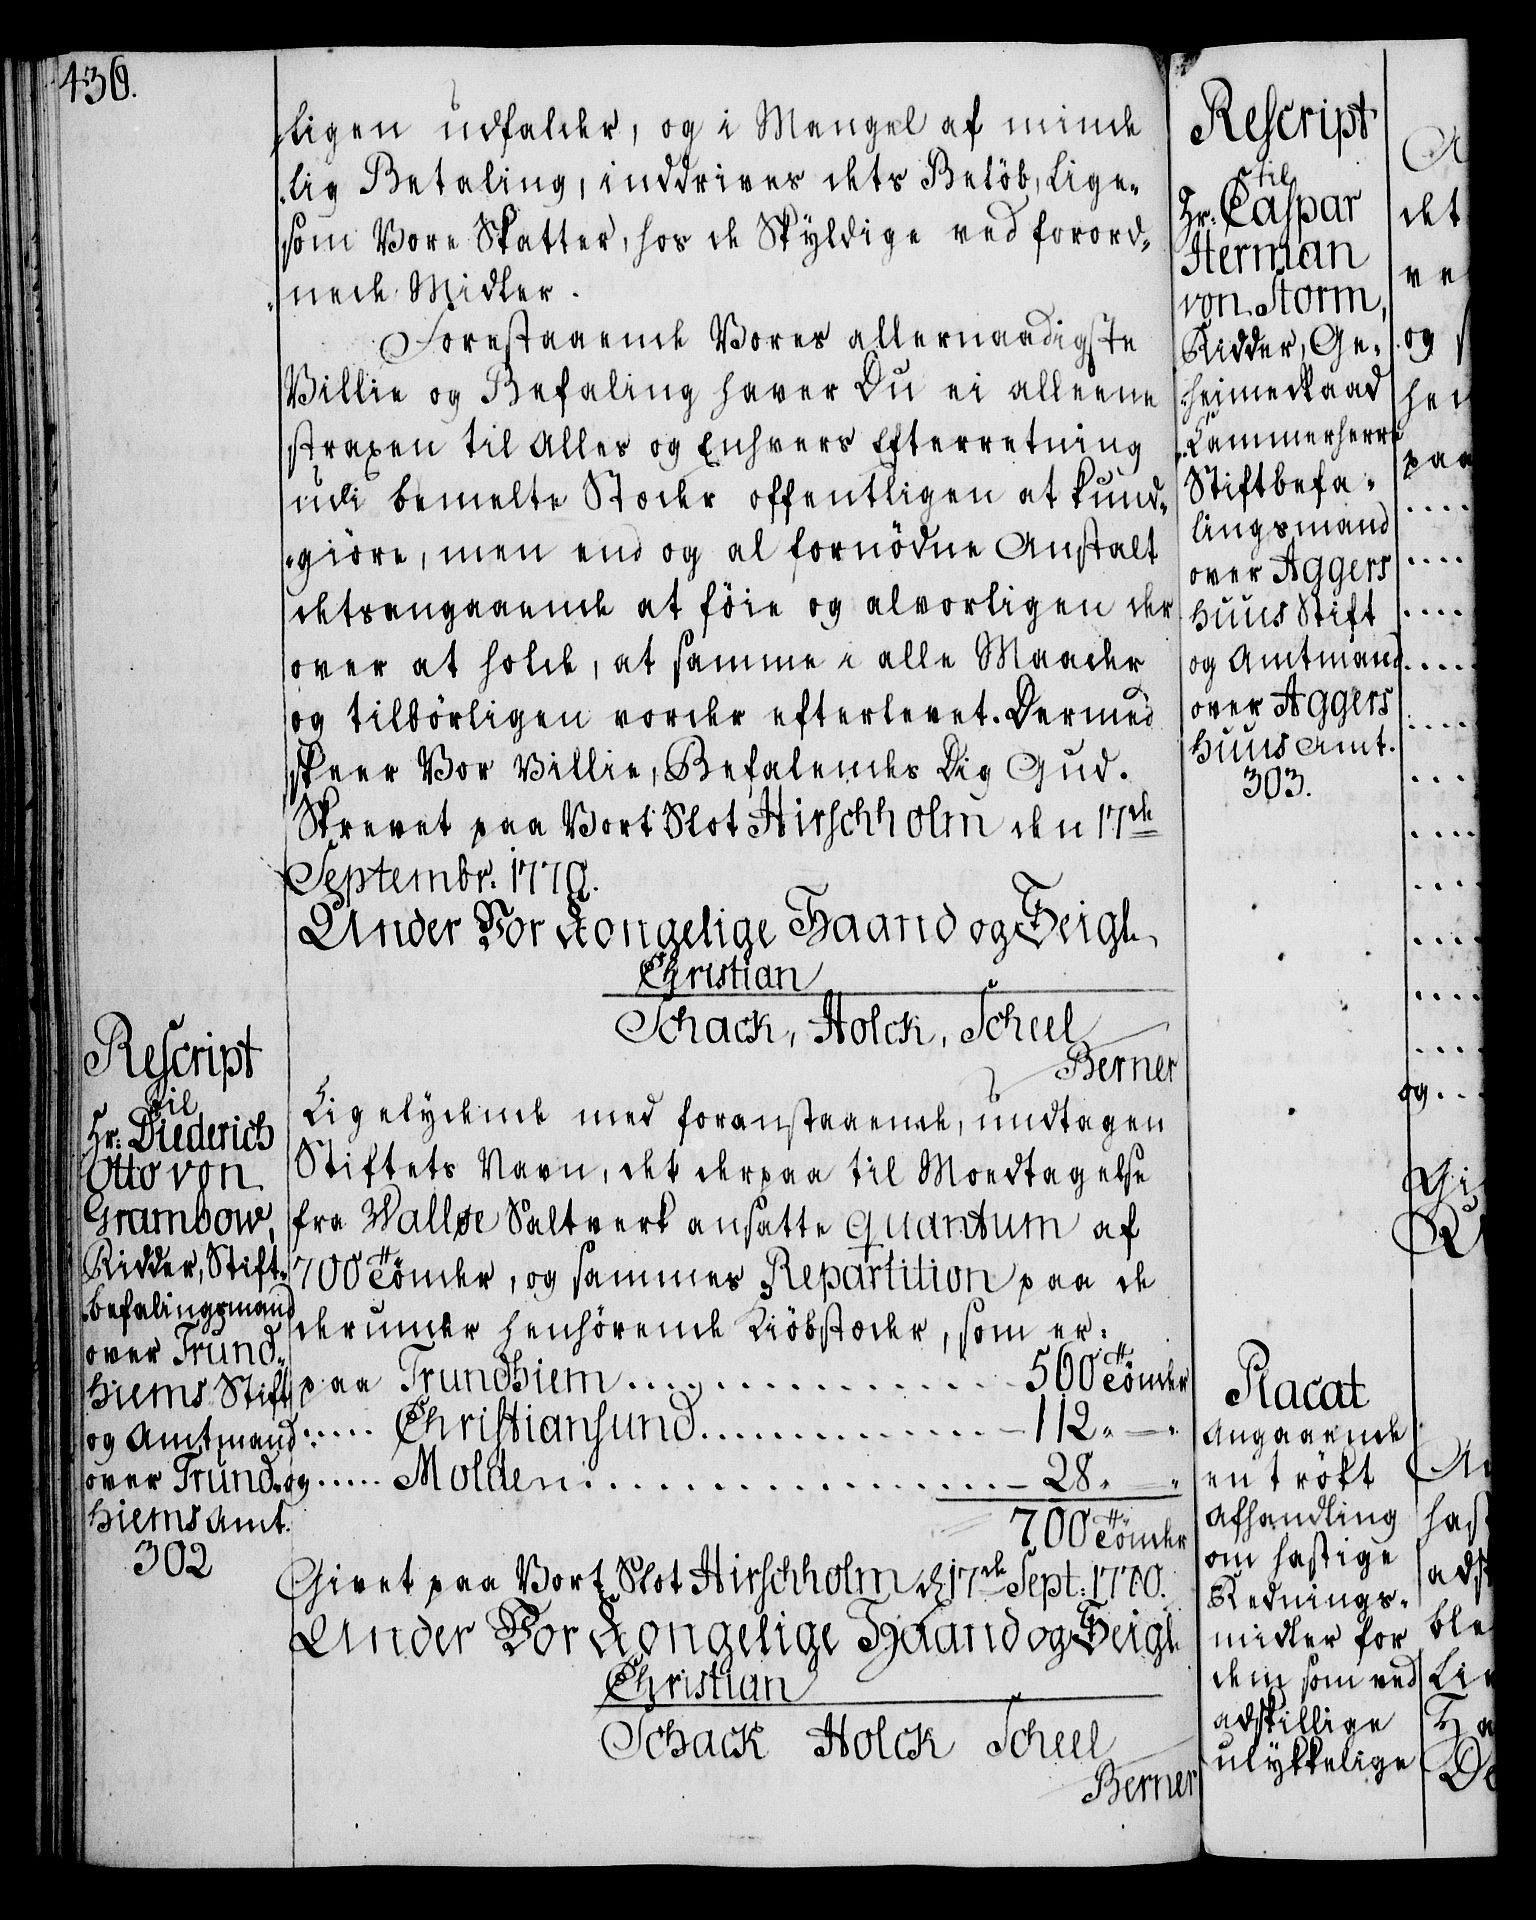 430.
ligen udfalder, og i Mangel af minde
lig Betaling, inddrives dets Beløb, lige-
som Vore Skatter, hos de Skÿldige ved forord-
nede Midler.
Forestaaende Vores allernaadigste
Villie og Befaling haver Du ei alleene
straxen til Alles og Enhvers Efterretning
udi bemelte Stæder offentligen at kund-
giöre, men end og al fornödne Anstalt
detsangaaende at föie og alvorligen der
over at holde, at samme i alle Maader
og tilbörligen vorder efterlevet. Dermed
skeer Vor Villie, Befalendes Dig Gud.
Skrevet paa Vort Slot Hirschholm den 17de
Septembr. 1770.
Under Vor Kongelige Haand og Zeigl.
Christian
Schack, Holck, Scheel
Berner
Rescript
til
Hr: Diederich
Otto von
Grambow,
Ridder, Stift-
befalingsmand
over Trund-
hiems Stift
og Amtmand
over Trund-
hiems Amt.
302
Ligelÿdende med foranstaaende, undtagen
Stiftets Navn, det derpaa til Modtagelse
fra Walløe Saltverk ansatte quantum af
700 Tönder, og sammes Repartition paa de
derunder henhörende Kiöbstæder, som er:
paa Trundhiem . . . . 560 Tönder
. . . . . Christiansund . . . . 112. — .
og . . . . . Molden . . . . 28. — .
700 Tönder
Givet paa Vort Slot Hirschholm d: 17de Sept: 1770.
Under Vor Kongelige Haand og Zeigl.
Christian
Schack Holck Scheel
Berner
Rescript
til
Hr: Caspar
Herman
von Storm,
Ridder, Ge-
heimeRaad
Cammerherre
Stiftbefa-
lingsmand
over Aggers
huus Stift
og Amtmand
over Aggers
huus Amt.
303.
Placat
Angaaende
en trÿkt
Afhandling
om hastige
Rednings-
midler for
dem som ved
adskillige
ulÿkkelige